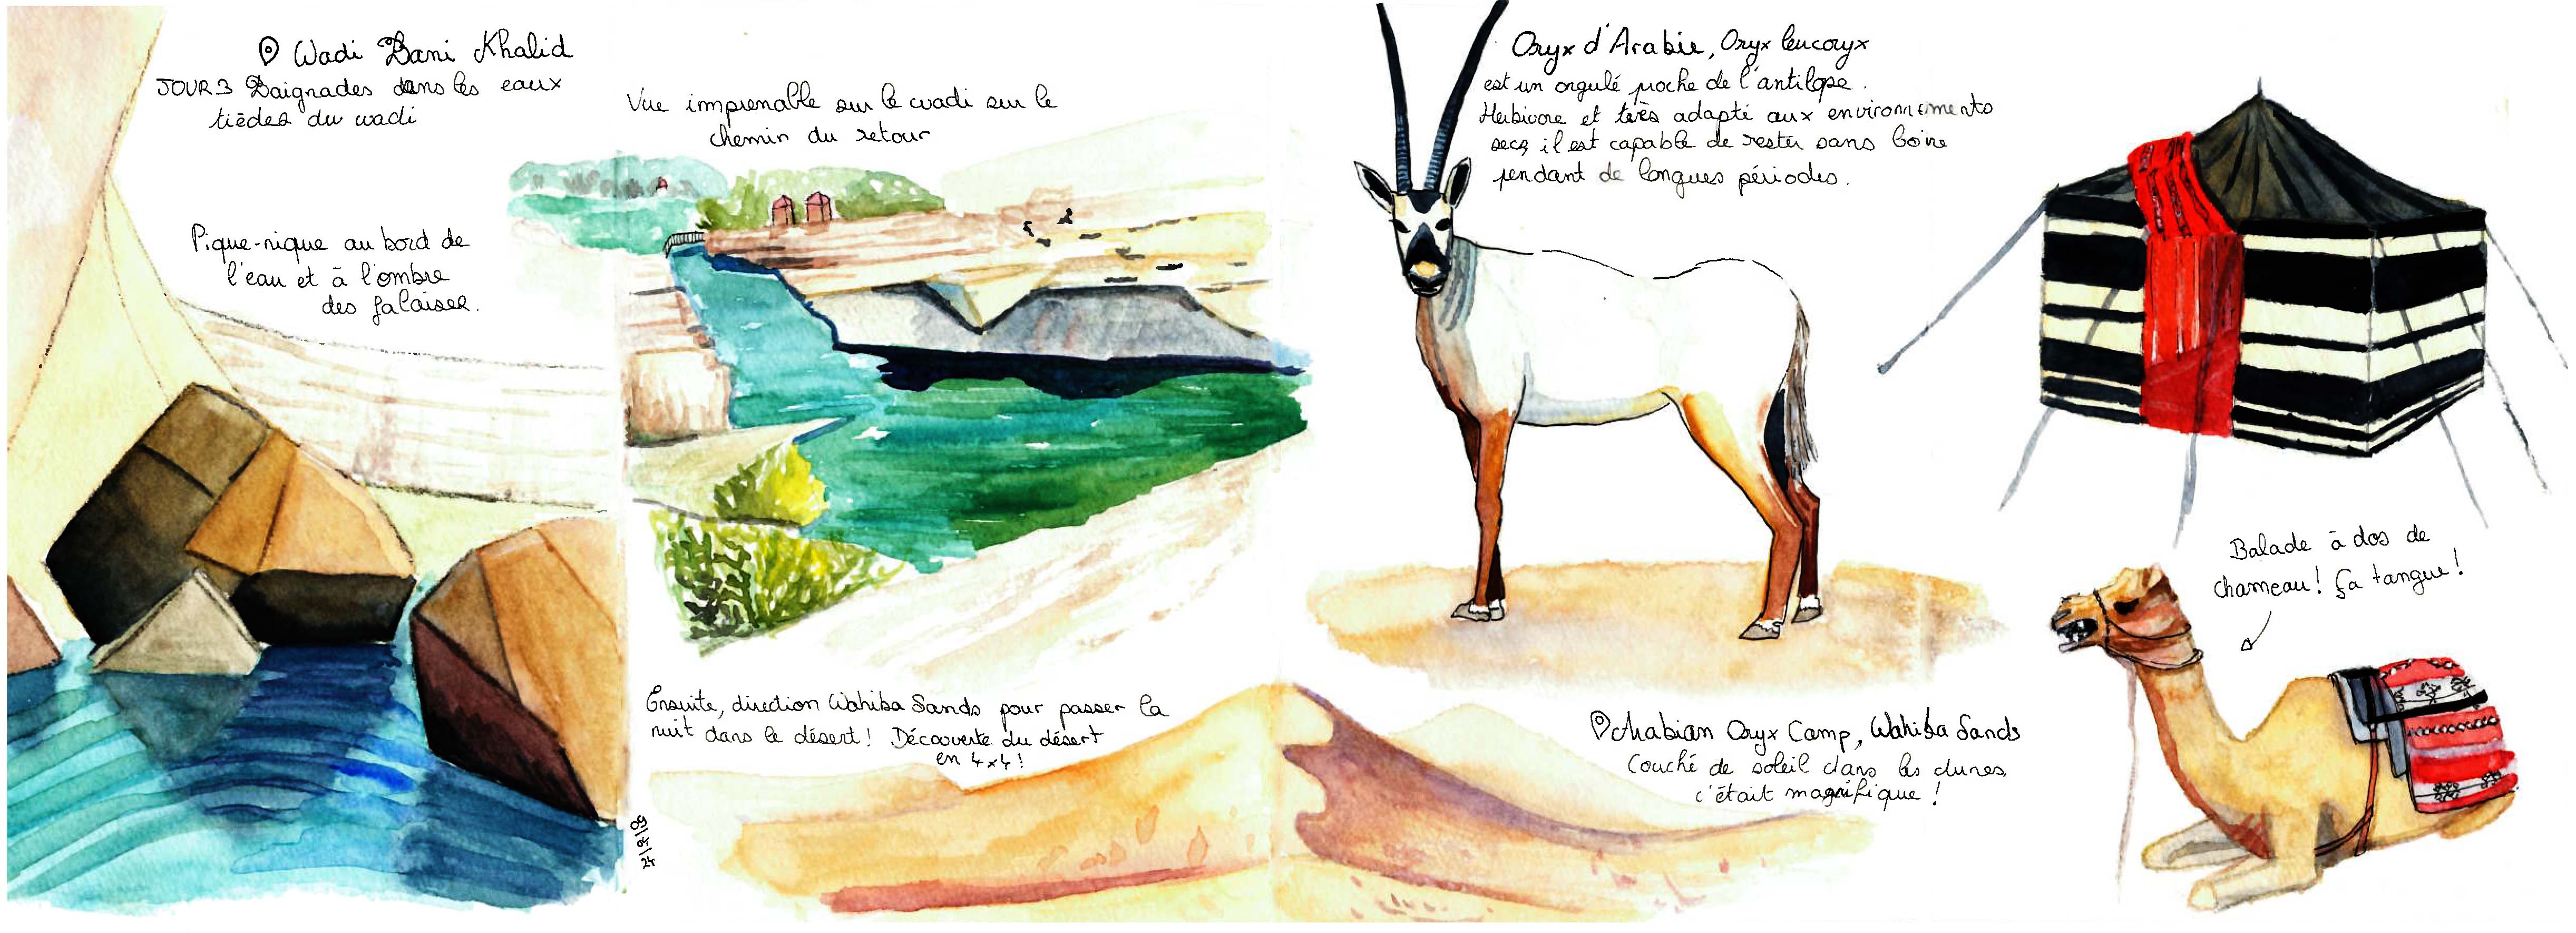 Wadi Bani Khalid
JOUR 3 Baignades dans les eaux
tièdes du wadi
Pique-nique au bord de
l'eau et à l'ombre
des falaises.
Vue imprenable sur le wadi sur le
chemin du retour
Ensuite, direction Wahiba Sands pour passer la
nuit dans le désert! Découverte du désert
en 4x4!
24/04/09
Oryx d'Arabie, Oryx leucoryx
est un ongulé proche de l'antilope.
Herbivore et très adapté aux environnements
secs il est capable de rester sans boire
pendant de longues périodes.
Arabian Oryx Camp, Wahiba Sands
Couché de soleil dans les dunes,
c'était magnifique!
Balade à dos de
chameau! Ça tangue!